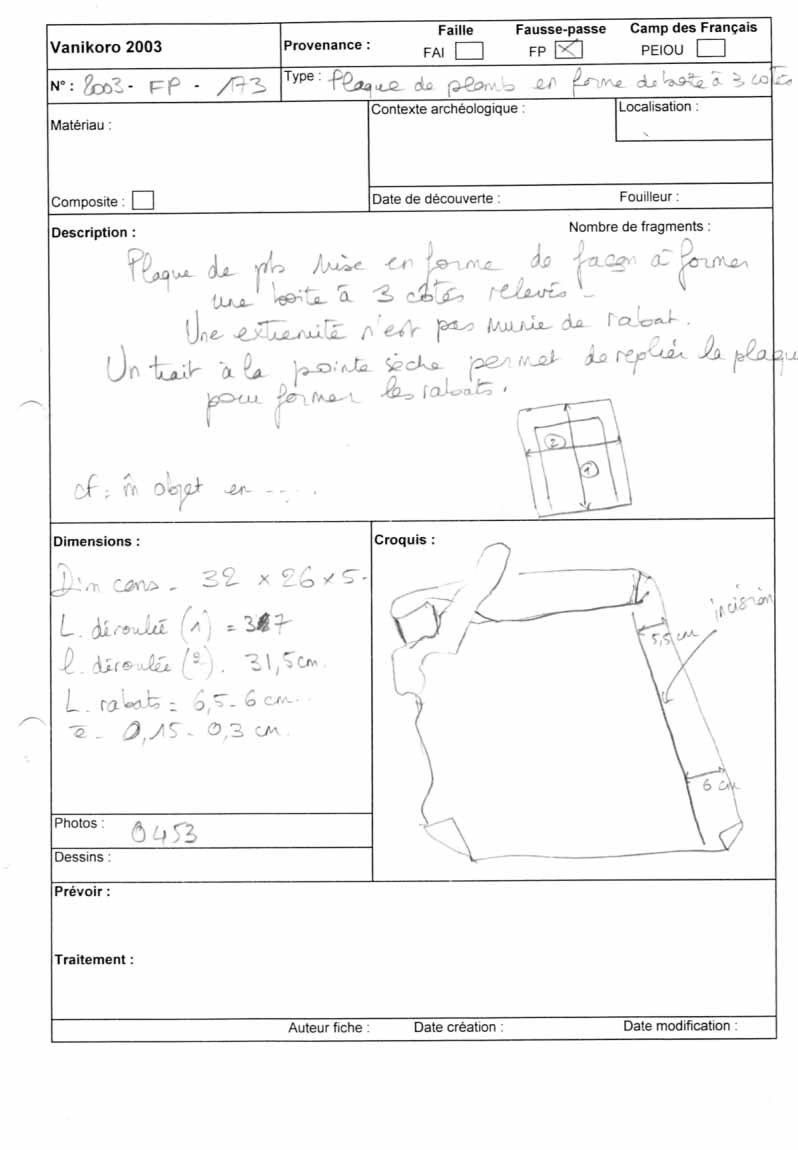 Vanikoro 2003
Provenance :
Faille
FAI
Fausse-passe
FP
Camp des Français
PEIOU
N° : 2003 - FP - 173
Type : Plaque de plomb en forme de boite à 3 cotés
Matériau :
Composite :
Contexte archéologique :
Localisation :
Date de découverte :
Fouilleur :
Description :
Nombre de fragments :
Plaque de pb mise en forme de façon à former
une boite à 3 côtés relevés -
Une extremité n'est pas munie de rabat.
Un trait à la pointe sèche permet de replier la plaque
pour former les rabats.
2
1
cf : m̂ objet en - ....
Dimensions :
Dim cons - 32 × 26 × 5 -
L. déroulée (1) = 37
l. déroulée (2). 31,5 cm.
L. rabats = 6,5 - 6 cm
e - 0,15 - 0,3 cm.
Croquis :
incision
5,5 cm
6 cm
Photos : 0453
Dessins :
Prévoir :
Traitement :
Auteur fiche :
Date création :
Date modification :